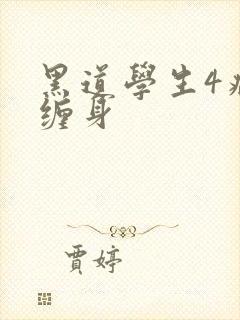 黑道學生4病
缠身
賈婷